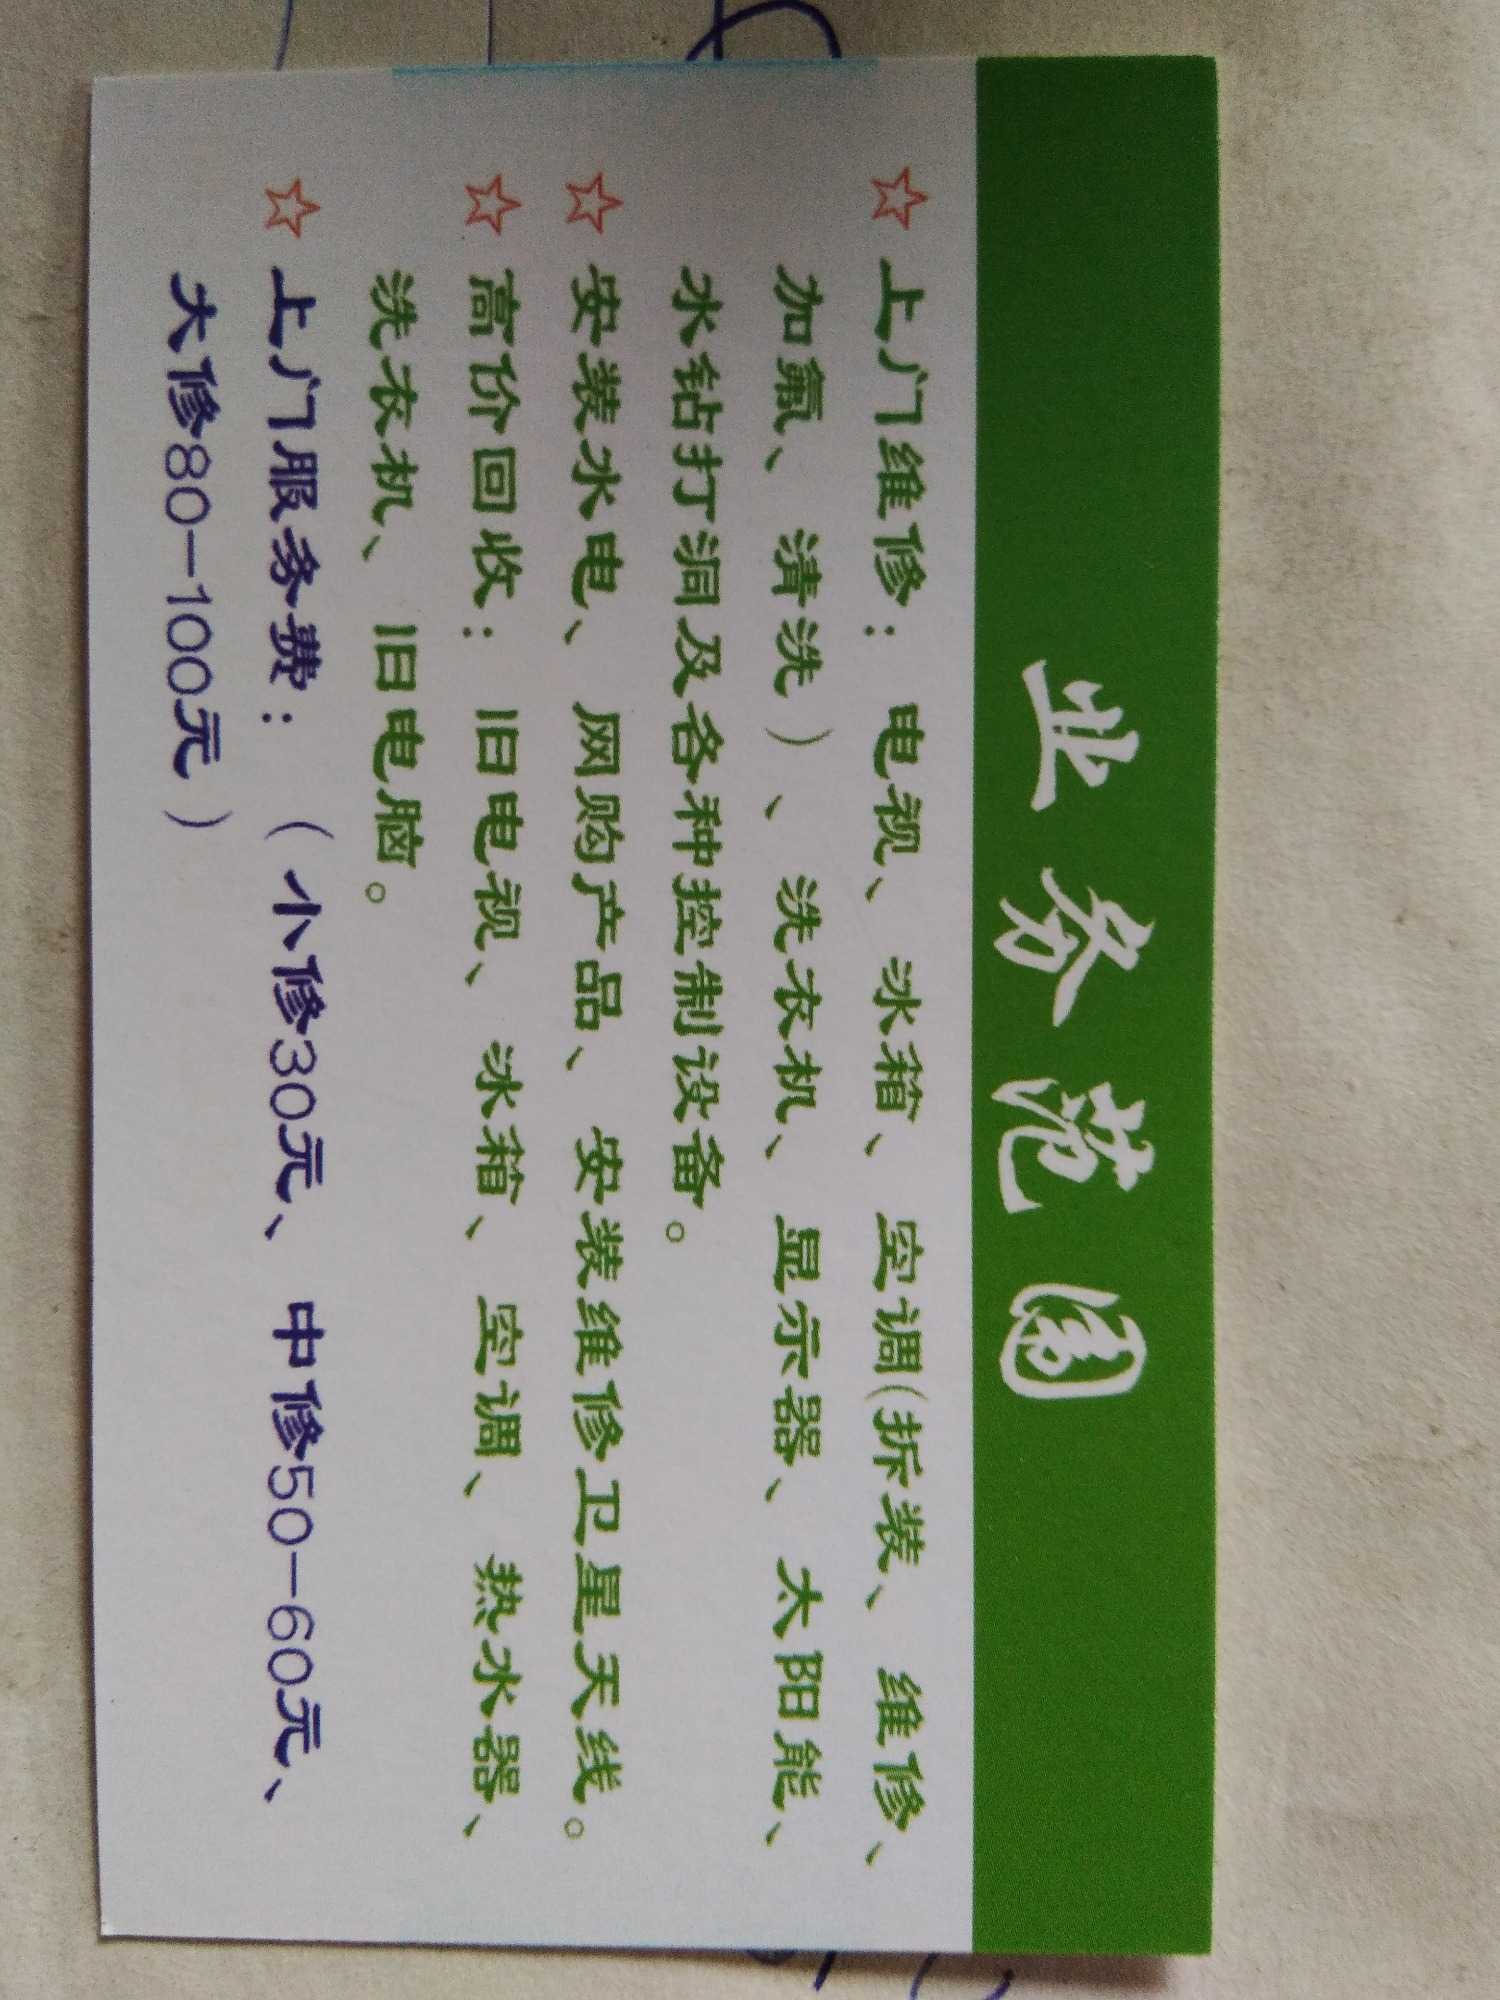 业务范围
☆ 上门维修：电视、冰箱、空调(拆装、维修、
加氟、清洗）、洗衣机、显示器、太阳能、
水钻打洞及各种控制设备。
☆ 安装水电、网购产品、安装维修卫星天线。
☆ 高价回收：旧电视、冰箱、空调、热水器、
洗衣机、旧电脑。
☆ 上门服务费：（小修30元、中修50-60元、
大修80-100元）